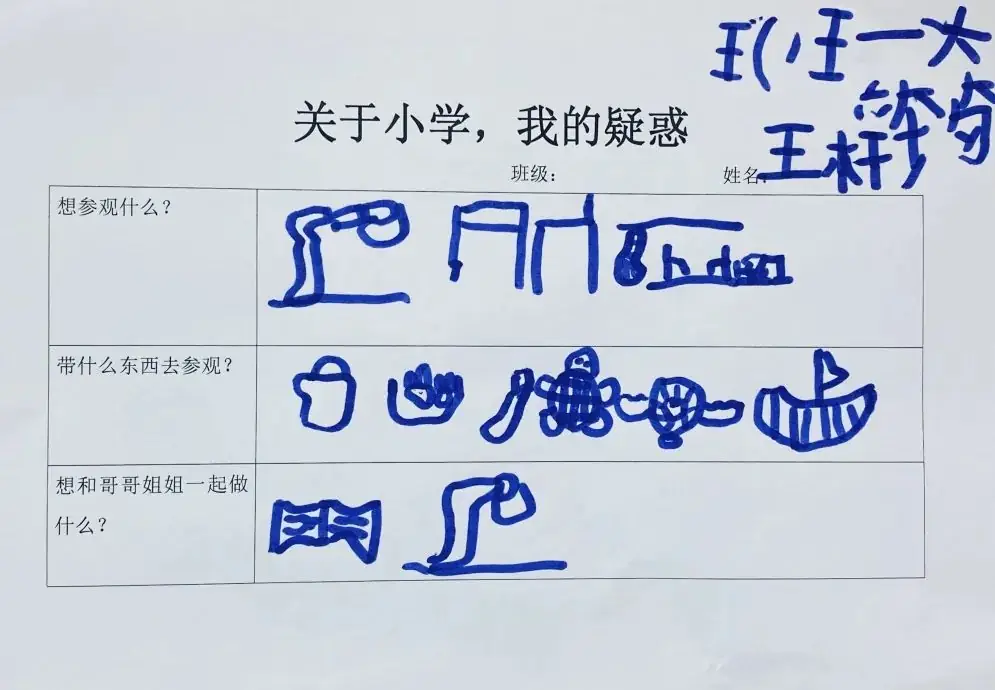 王一大
王杆
关于小学，我的疑惑
班级：
姓名：
想参观什么？
带什么东西去参观？
想和哥哥姐姐一起做
什么？